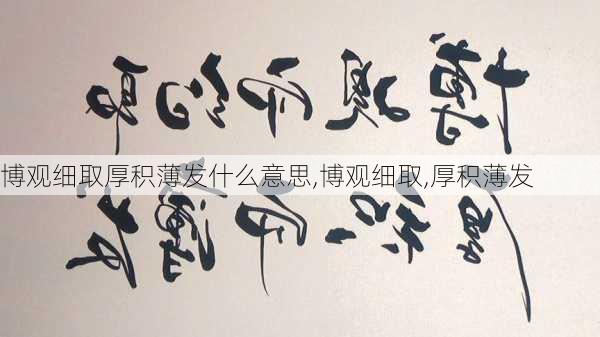 博观而约取
博观细取厚积薄发什么意思,博观细取,厚积薄发
厚积而薄发